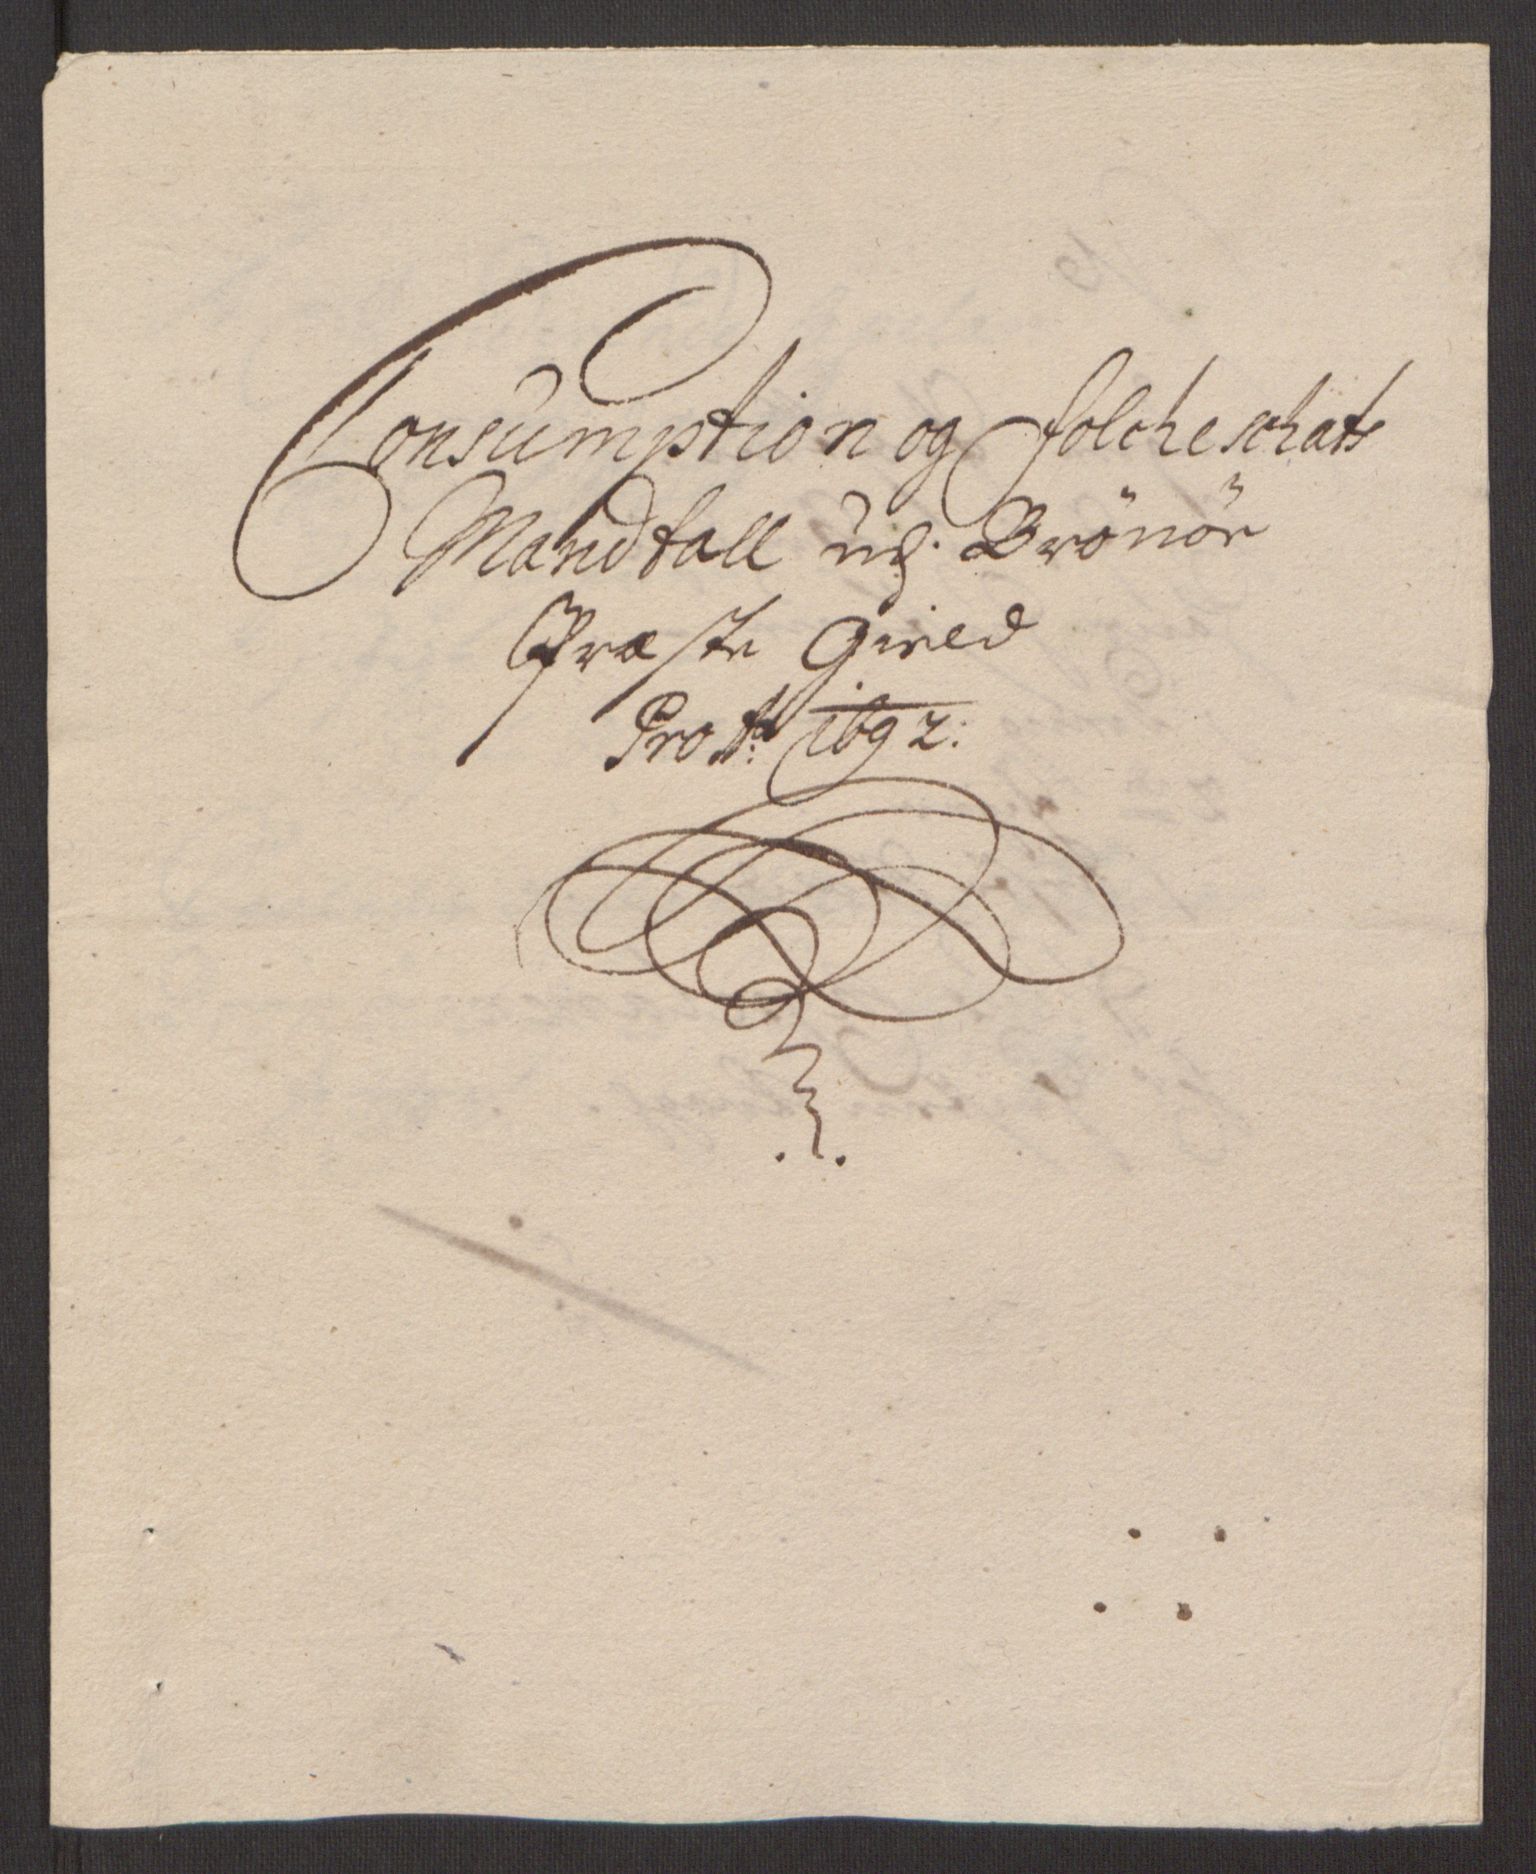 Consumption og folcheschats
Mandtall udj Brönör
Præste Gield
Pro Aᵒ: 1692: